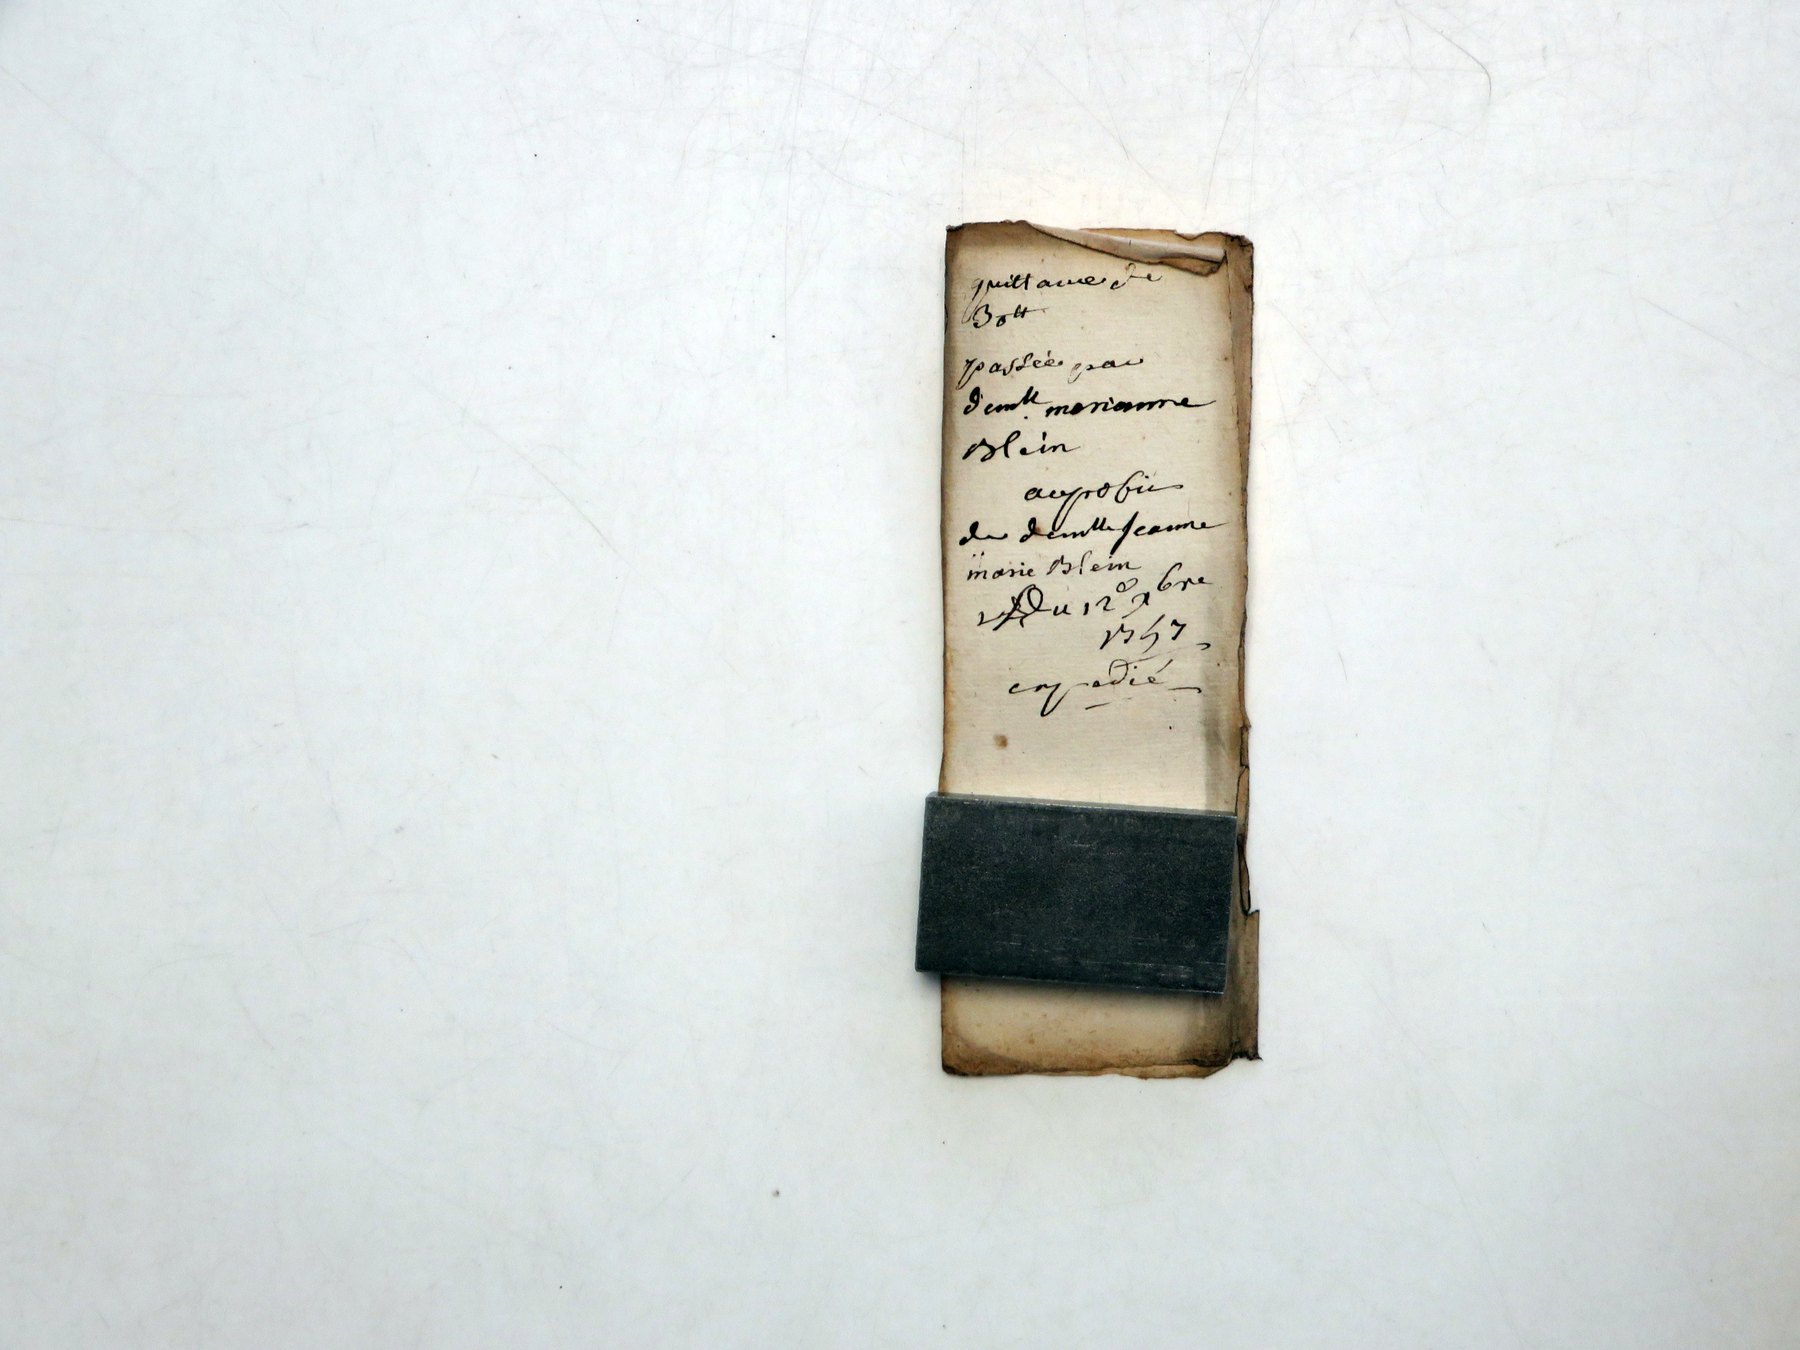 quittance de
30tt
passée par
demlle marianne
Blein
au profit
de demlle Jeanne
marie Blein
Du 12e xbre
1747
expedié